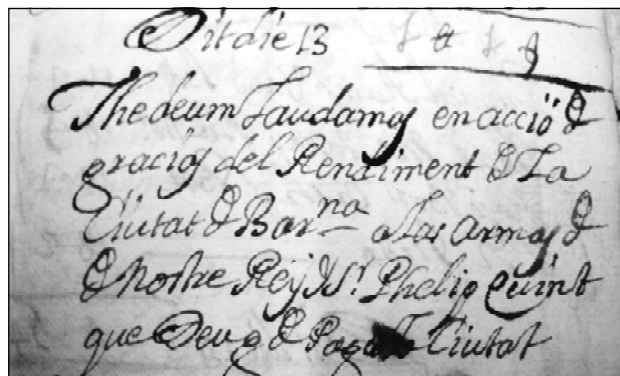 Dit die 13
Thedeum Laudamus en acció de
gracias del Rendiment de La
Ciutat de Bar.na a Las armas de
de Nostre Rey y Sr. Phelip quint
que Deu g.de Ciutat